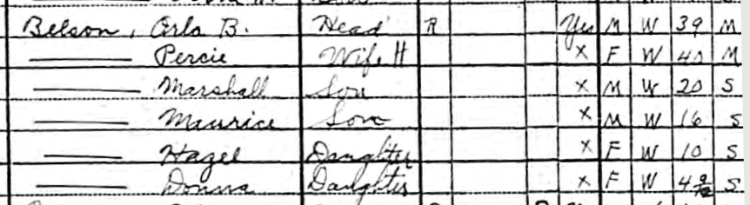 Belson, Arla B. Head R Yes M W 39 M
Percie Wife H X F W 40 M
Marshall Son X M W 20 S
Maurice Son X M W 16 S
Hazel Daughter X F W 10 S
Donna Daughter X F W 4 9/12 S